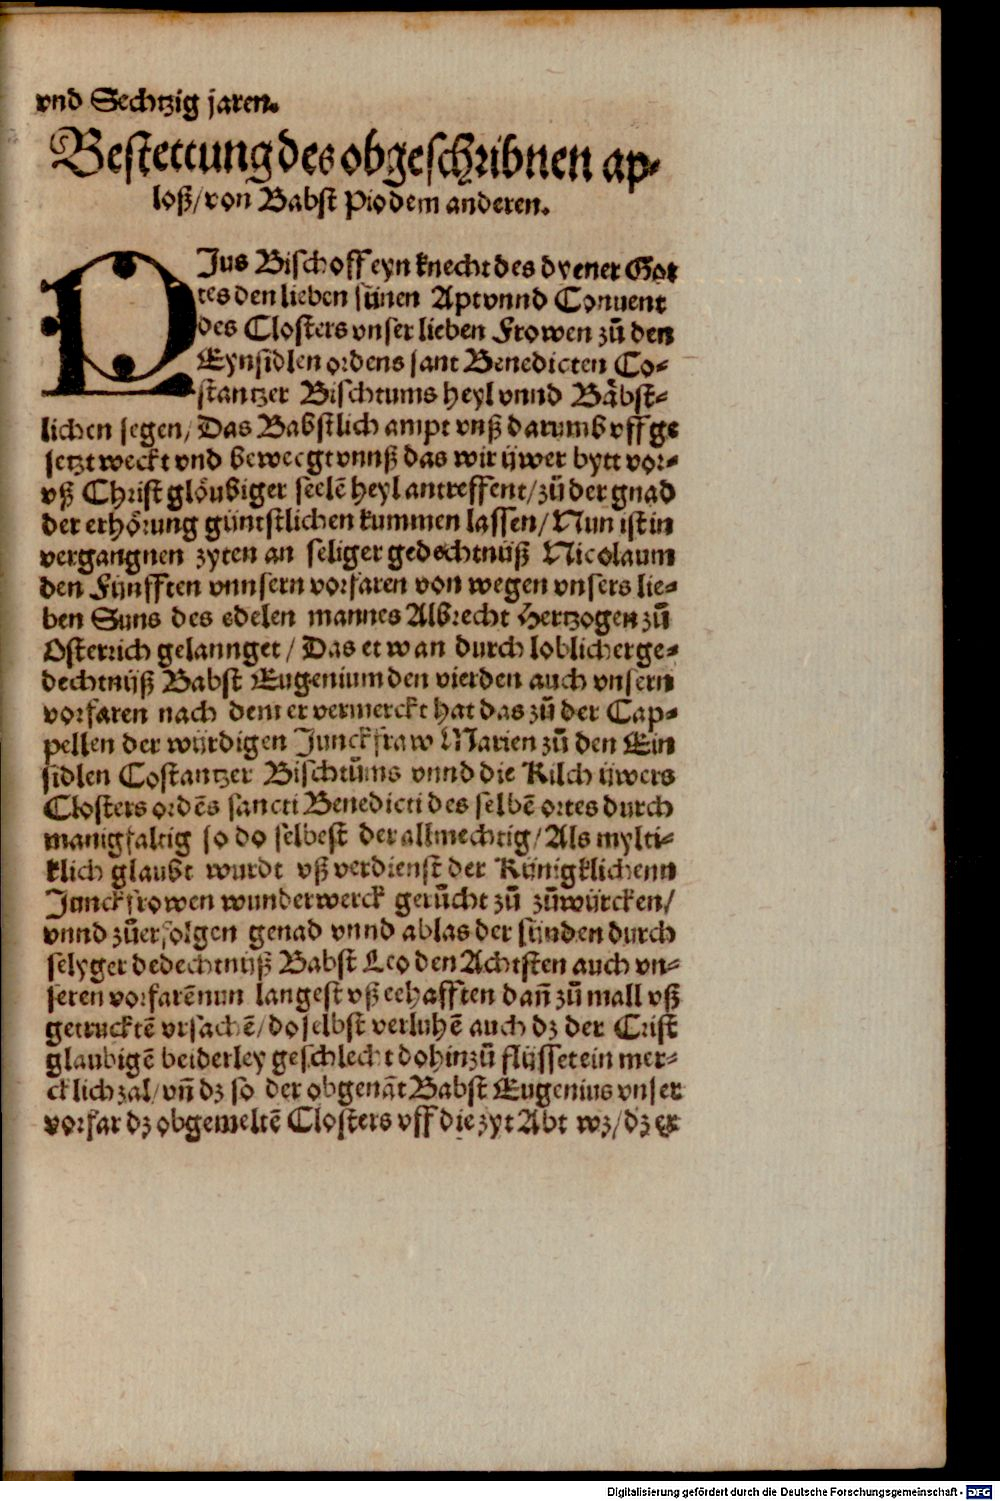 vnd Sechtzig jaren.
Bestettung des obgeschribnen ap-
loß/von Babst Pio dem anderen.
PIus Bischoff eyn knecht des dyener Got
tes den lieben sünen Apt vnnd Conuent
des Closters vnser lieben Frowen zů den
Eynsidlen ordens sant Benedicten Co-
stantzer Bischtums heyl vnnd Bäbst-
lichen segen/ Das Babstlich ampt vnß darumb vff ge
setzt weckt vnd bewegt vnnß das wir üwer bytt vor-
vß Christ glöubiger seelē heyl antreffent/ zů der gnad
der erhörung güntstlichen kummen lassen/ Nun ist in
vergangnen zyten an seliger gedechtnüß Nicolaum
den Fünfften vnnsern vorfaren von wegen vnsers lie-
ben Suns des edelen mannes Albrecht Hertzogen zů
Osterrich gelannget/ Das etwan durch loblicher ge-
dechtnüß Babst Eugenium den vierden auch vnsern
vorfaren nach dem er vermerckt hat das zů der Cap-
pellen der würdigen Junckfraw Marien zů den Ein
sidlen Costantzer Bischtůms vnnd die Kilch üwers
Closters ordēs sancti Benedicti des selbē ortes durch
manigfaltig so do selbest der allmechtig/ Als mylti-
klich glaubt wurdt vß verdienst der Künigklichenn
Junckfrowen wunderwerck gerůcht zů zůwürcken/
vnnd zůerfolgen genad vnnd ablas der sünden durch
selyger dedechtnüß Babst Leo den Achtsten auch vn-
seren vorfarē nun langest vß eehafften dañ zů mall vß
getrucktē vrsachē/ do selbst verluhē auch dz der Crist
glaubigē beiderley geschlecht dohinzů flüsset ein mer-
cklich zal/ vñ dz so der obgenāt Babst Eugenius vnser
vorfar dz obgemeltē Closters vff die zyt Abt wz/ dz er
Digitalisierung gefördert durch die Deutsche Forschungsgemeinschaft - DFG